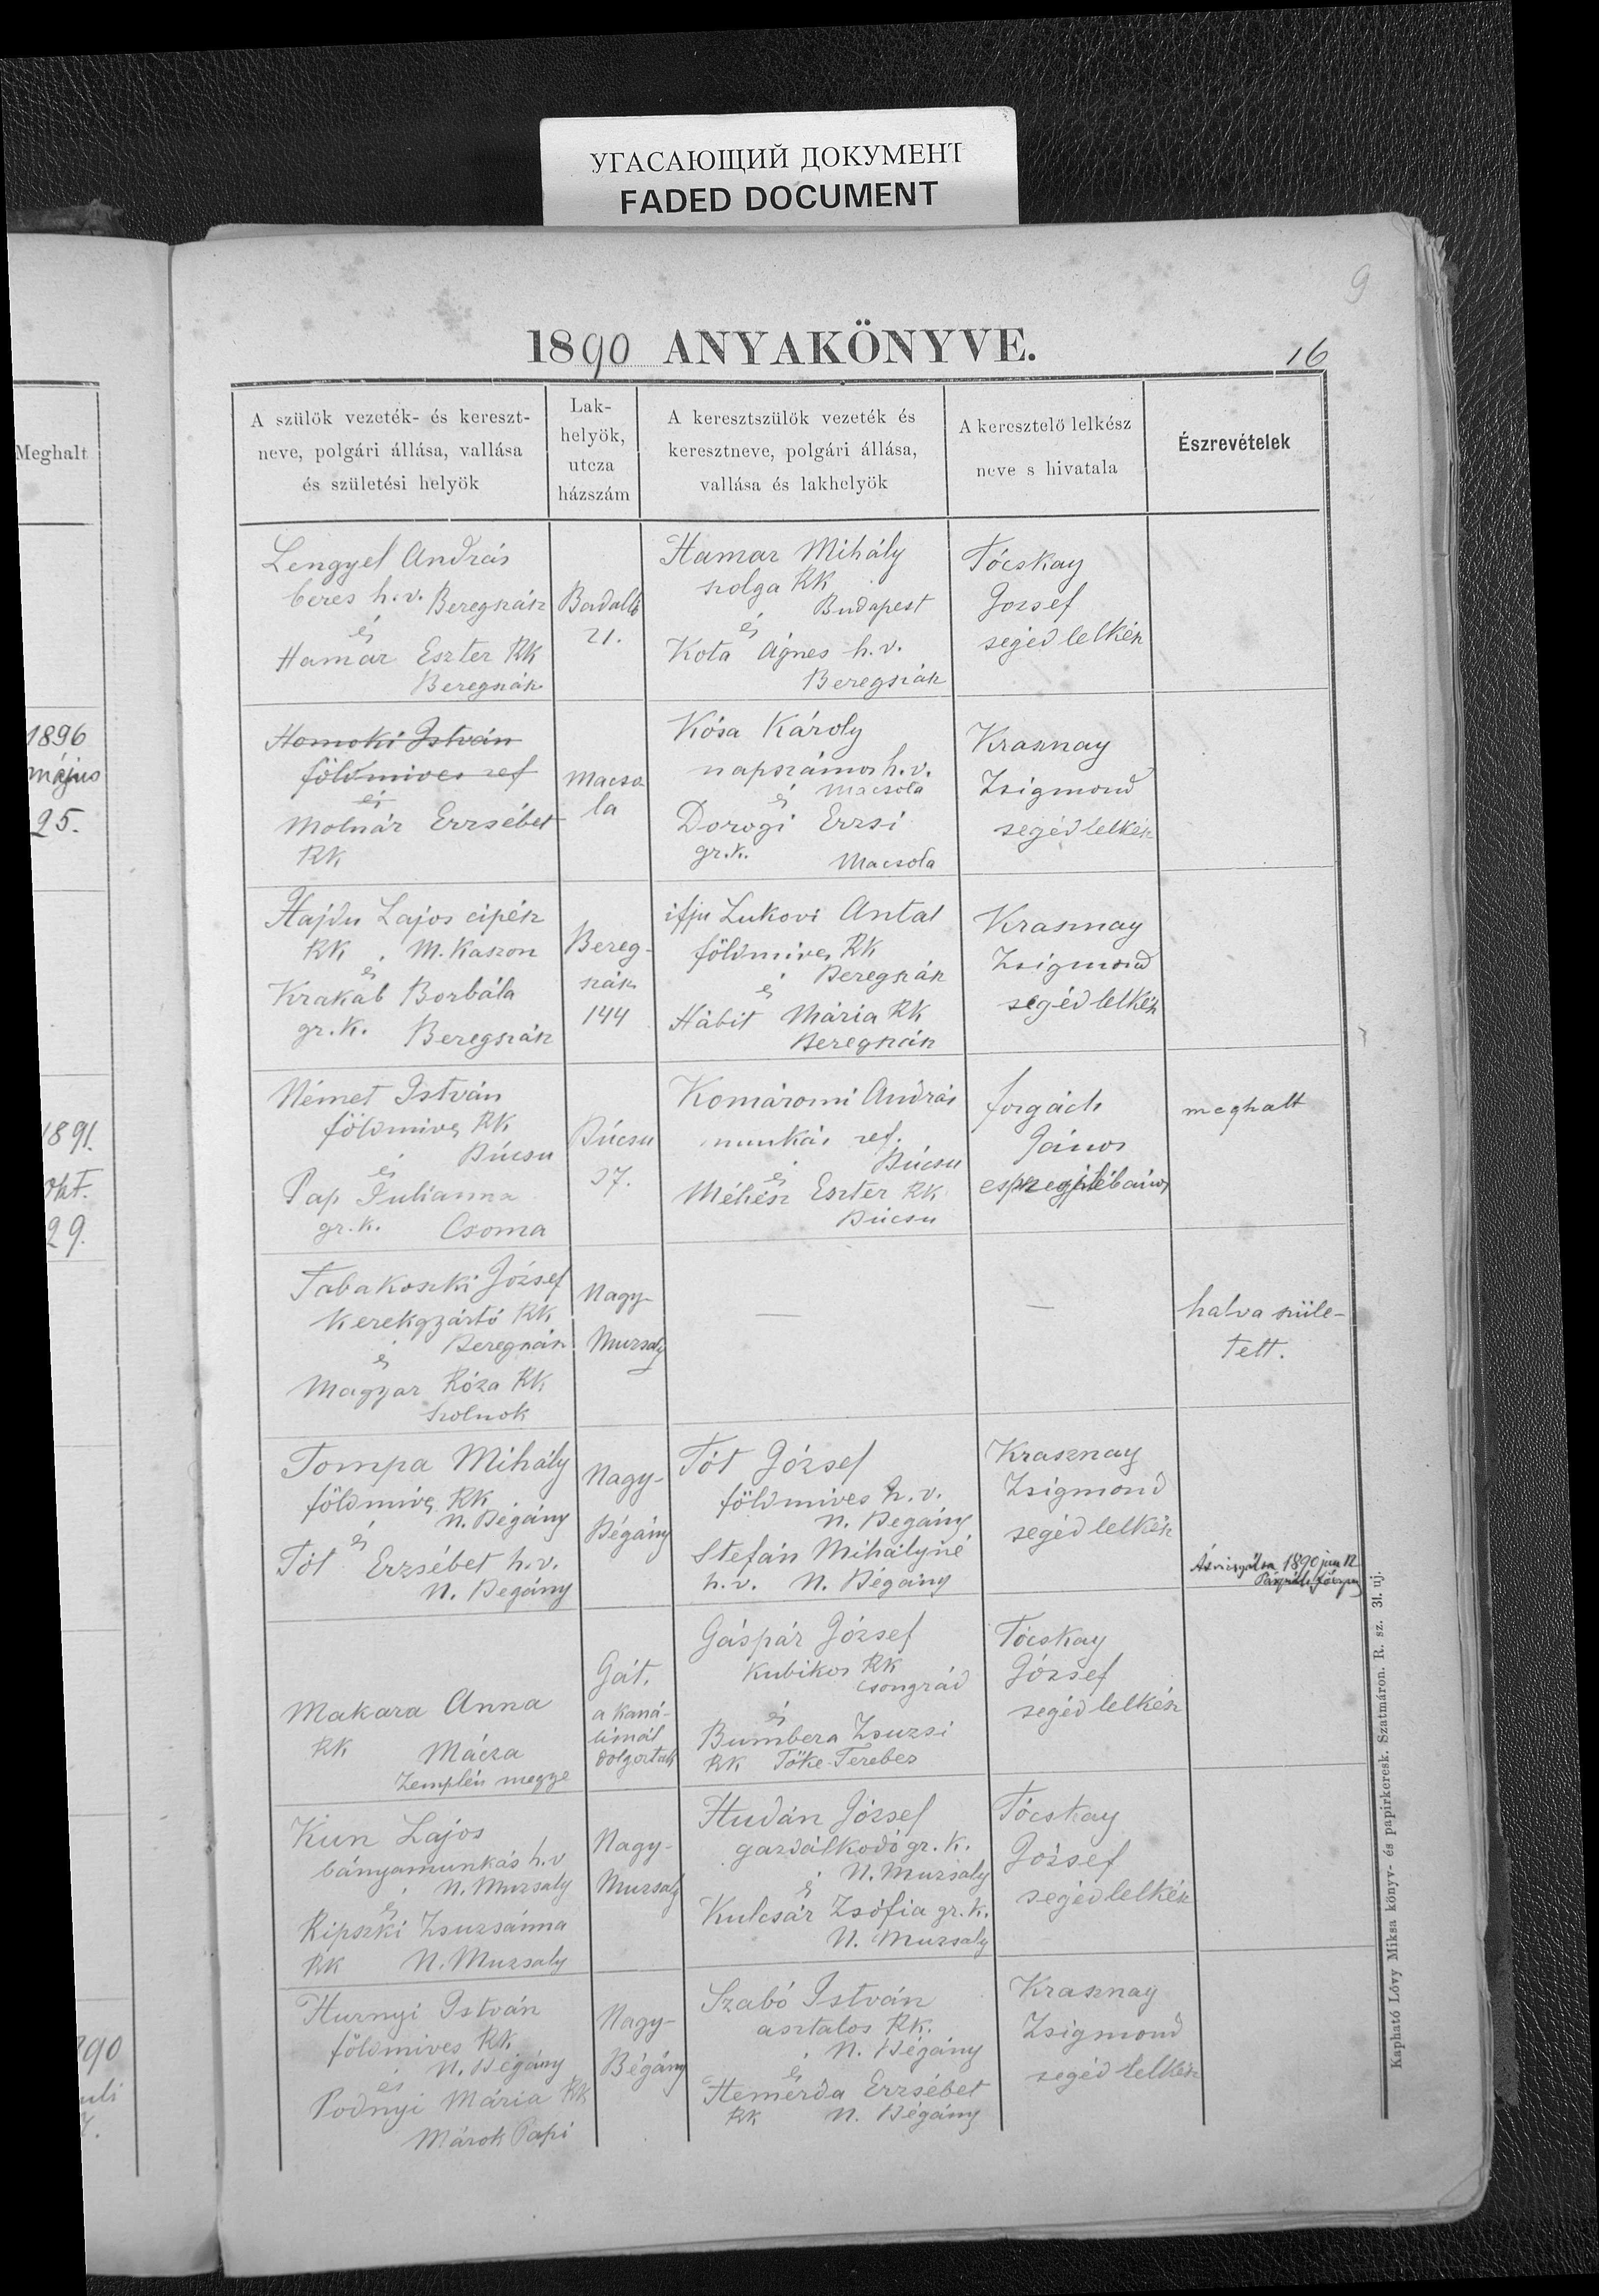 УГАСАЮЩИЙ ДОКУМЕНТ
FADED DOCUMENT
9
1890 ANYAKÖNYVE.
16
Meghalt
1896
május
25.
1891.
okt.
29.
A szülök vezeték- és kereszt-
neve, polgári állása, vallása
és születési helyök
Lak-
helyök,
utcza
házszám
A keresztszülök vezeték és
keresztneve, polgári állása,
vallása és lakhelyök
A keresztelő lelkész
neve s hivatala
Észrevételek
Lengyel András
béres h.v. Beregszász
és
Hamar Eszter RK
Beregszász
Badalló
21.
Hamar Mihály
szolga RK
Budapest
és
Kota Ágnes h.v.
Beregszász
Tócskay
József
segéd lelkész
Homoki István
földmives ref
és
Molnár Erzsébet
RK
Macso
la
Kósa Károly
napszámos h.v.
és Macsola
Dorogi Erzsi
gr.k. Macsola
Krasznay
Zsigmond
segéd lelkész
Hajdu Lajos cipész
RK M. Kaszon
és
Krakab Borbála
gr.k. Beregszász
Bereg-
szász
144
ifju Lukovi Antal
földmives RK
és Beregszász
Hábit Mária RK
Beregszász
Krasznay
Zsigmond
segéd lelkész
Német István
földmives RK
és Búcsu
Pap Julianna
gr.k. Csoma
Búcsu
37.
Komáromi András
munkás ref.
és Búcsu
Méhész Eszter RK
Búcsu
forgách
János
meghalt
Tabakoszki József
kerékgyártó RK
és Beregszász
Magyar Róza RK
Szolnok
Nagy-
Muzsaly
—
—
halva szüle-
tett.
Tompa Mihály
földmives RK
N. Bégány
és
Tót Erzsébet h.v.
N. Begány
Nagy-
Bégány
Tót József
földmives h.v.
N. Begány
Stefán Mihályné
h.v. N. Bégány
Krasznay
Zsigmond
segéd lelkész
1890 jun 12
Makara Anna
RK Mácza
Zemplén megye
Gát,
a kaná-
lisnál
dolgoztak
Gáspár József
kubikos RK
Csongrád
és
Bumbera Zsuzsi
RK Tőke-Terebes
Tócskay
József
segéd lelkész
Kun Lajos
bányamunkás h.v
N. Muzsaly
és
Ripszki Zsuzsánna
RK N. Muzsaly
Nagy-
Muzsaly
Hudán József
gazdálkodó gr.k.
és N. Muzsaly
Kulcsár Zsófia gr.k.
N. Muzsaly
Tócskay
József
segéd lelkész
Hurnyi István
földmives RK
és N. Bégány
Podnyi Mária RK
Márok Papi
Nagy-
Bégány
Szabó István
asztalos RK.
N. Bégány
és
Hemerda Erzsébet
RK N. Bégány
Krasznay
Zsigmond
segéd lelkész
Kapható Lővy Miksa könyv- és papirkeresk. Szatmáron. R. sz. 3l. uj.